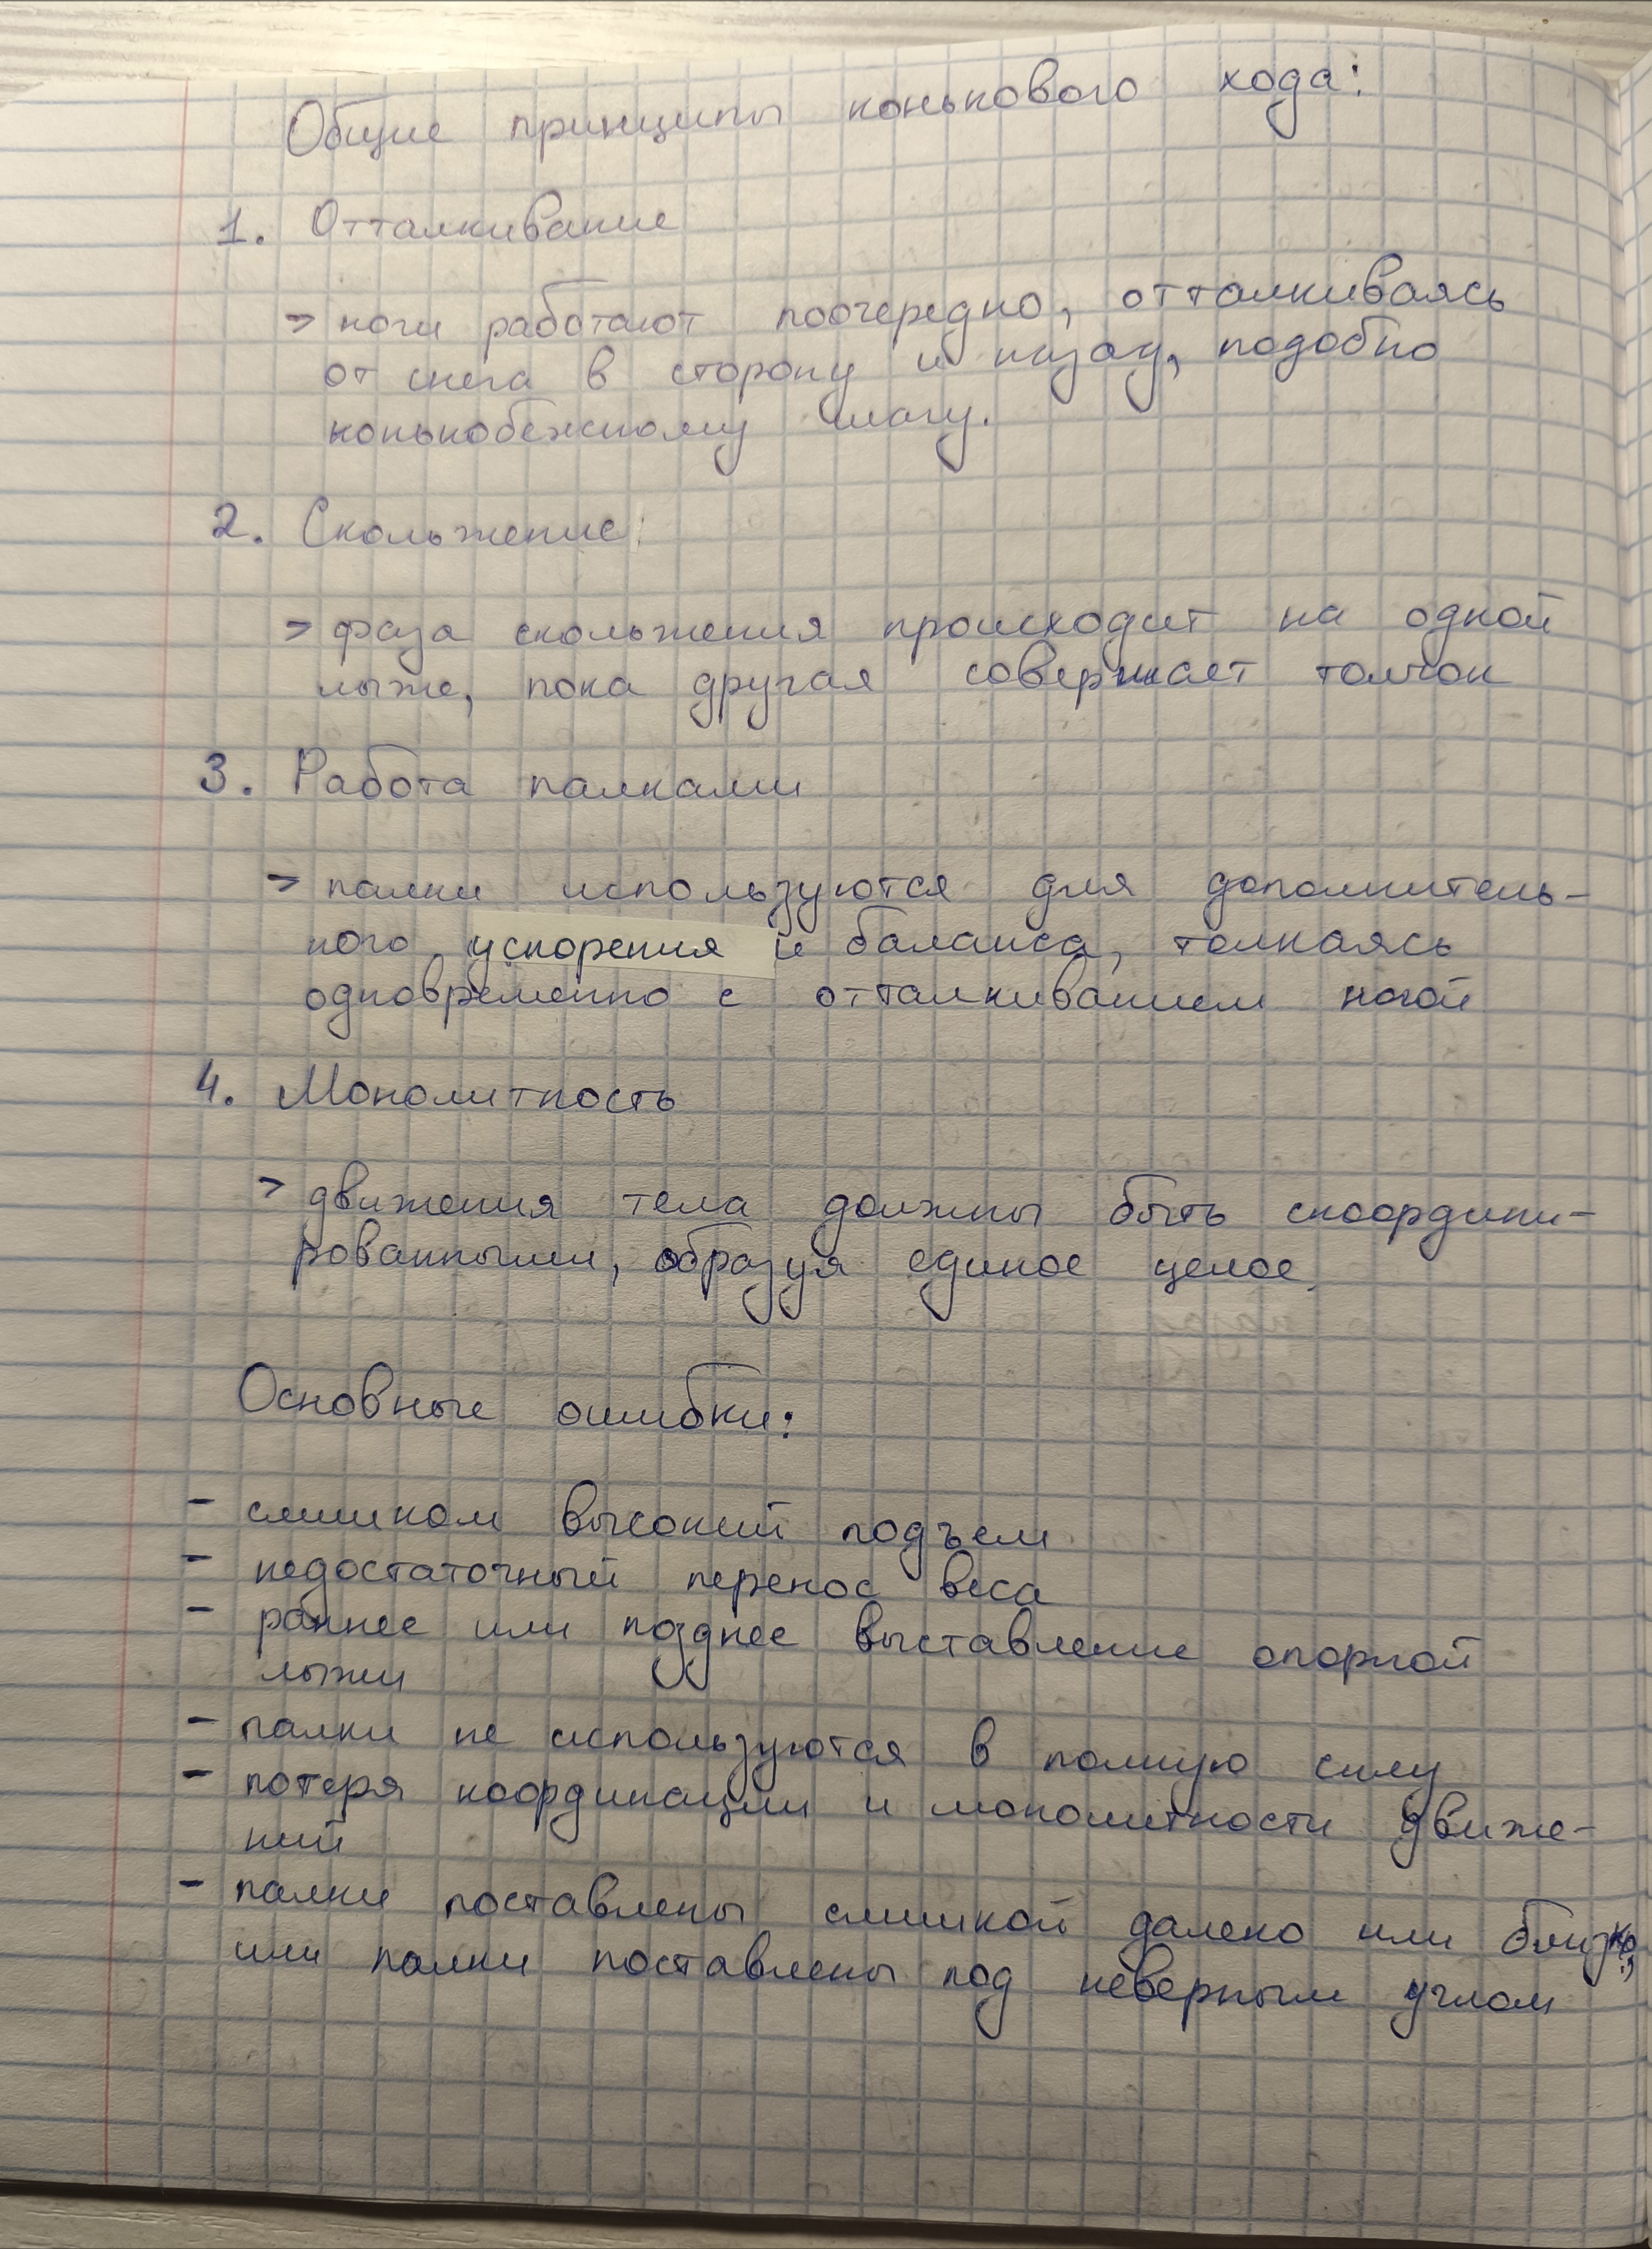 Общие принципы конькового хода:
1. Отталкивание
> ноги работают поочередно, отталкиваясь
от снега в сторону и назад, подобно
конькобежному шагу.
2. Скольжение:
> фаза скольжения происходит на одной
лыже, пока другая совершает толчок
3. Работа палками
> палки используются для дополнитель-
ного ускорения и баланса, толкаясь
одновременно с отталкиванием ногой
4. Монолитность
> движения тела должны быть скоордини-
рованными, образуя единое целое.
Основные ошибки:
- слишком высокий подъем
- недостаточный перенос веса
- раннее или позднее выставление опорной
лыжи
- палки не используются в полную силу
- потеря координации и монолитности движе-
ний
- палки поставлены слишкой далеко или близко;
или палки поставлены под неверным углом